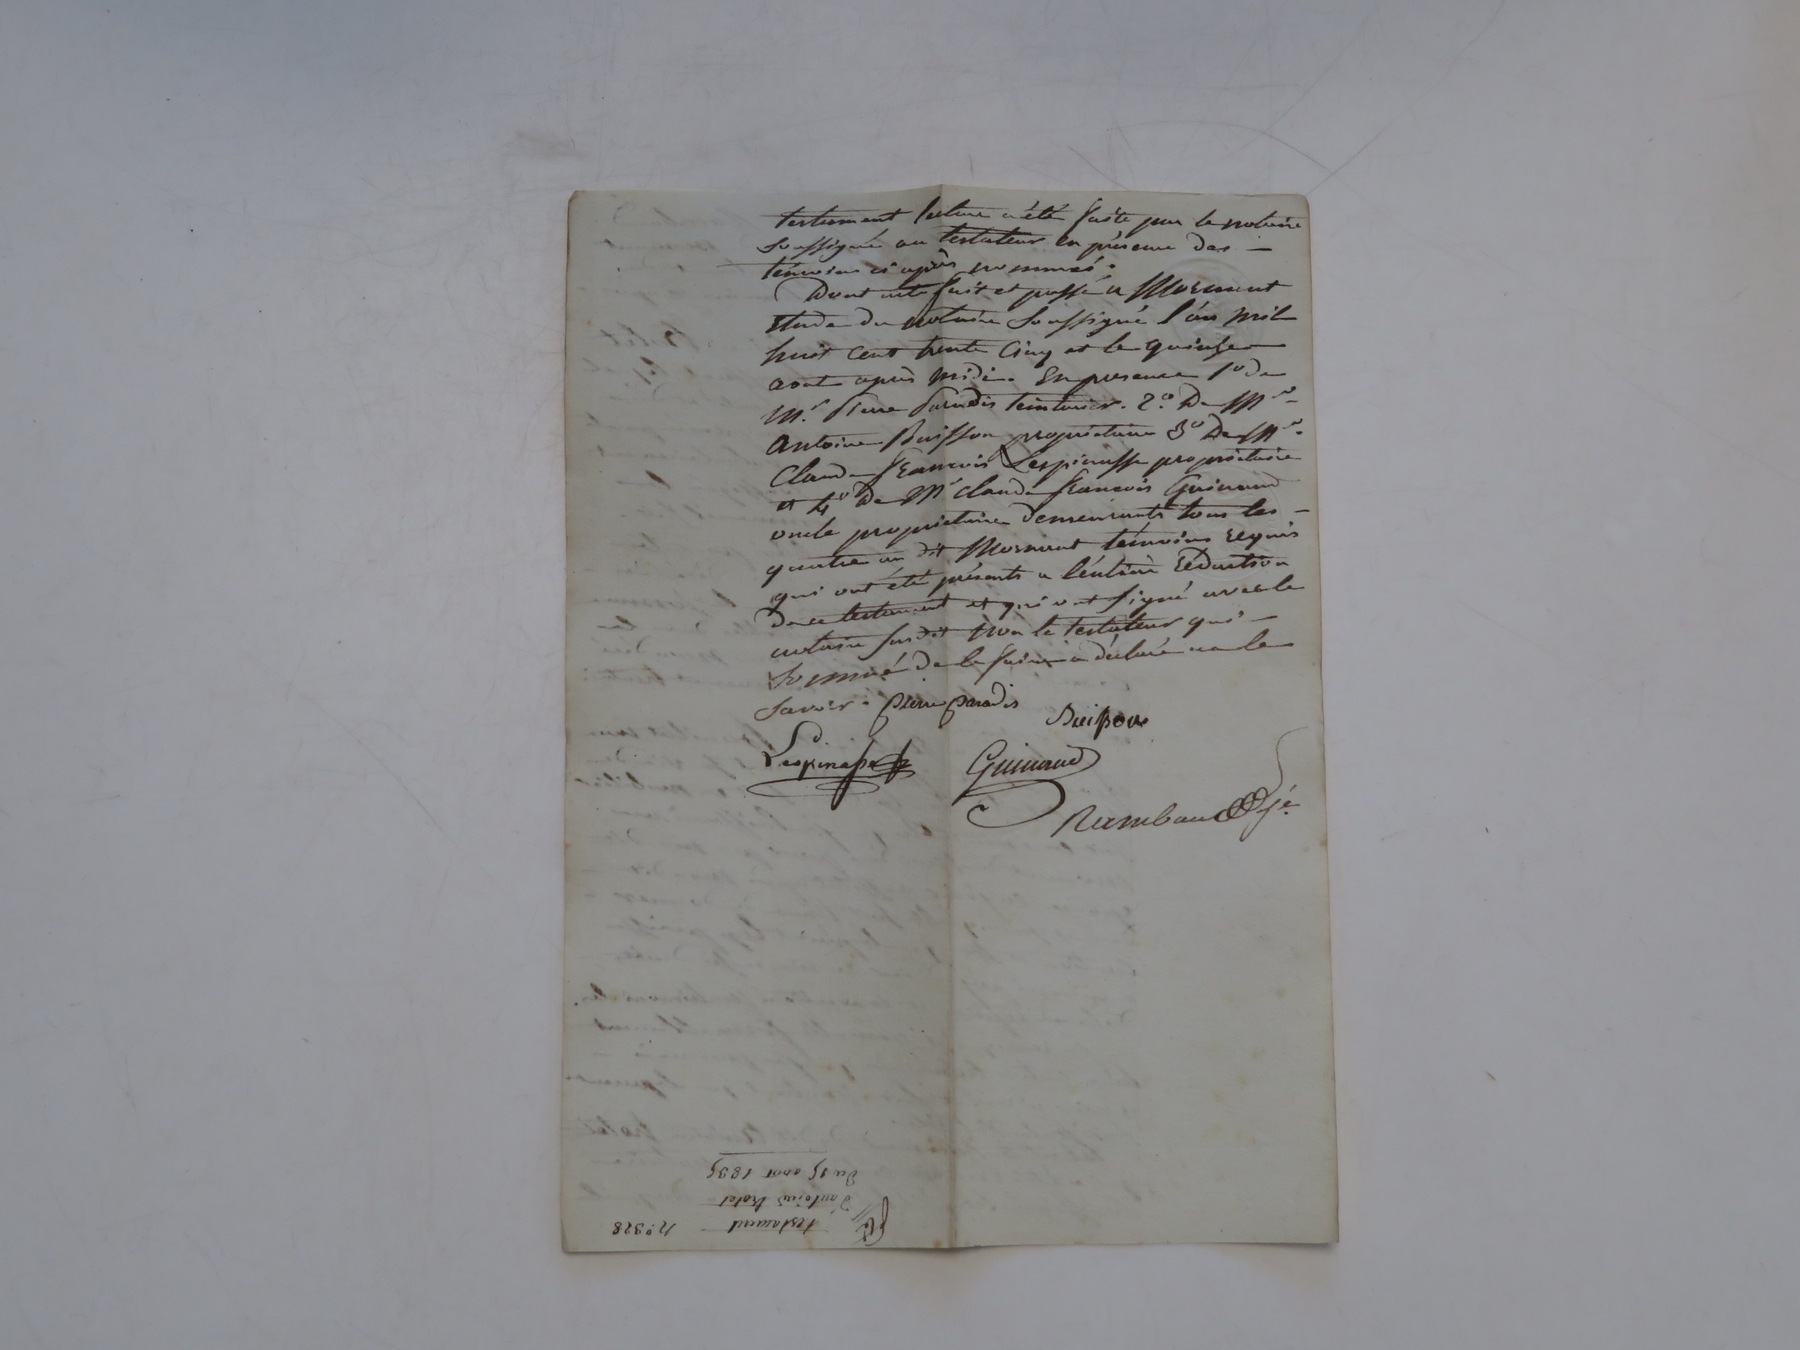 testament lecture a été faite par le notaire
soussigné au testateur en présence des —
témoins ci après nommés.
Dont acte fait et passé a Mornant
étude du notaire soussigné l'an mil
huit cent trente cinq et le quinze
aout après midi. En presence 1° de
Mr. Pierre Paradis teinturier. 2° De Mr.
Antoine Buisson propriétaire 3° De Mr.
Claude François Lespinasse propriétaire
et 4° De Mr claude françois Guinand
oncle propriétaire demeurants tous les —
quatre au dit Mornant témoins requis
qui ont été présents a l'entière rédaction
de ce testament et qui ont signé avec le
notaire susdit non le testateur qui —
sommé de le faire a déclaré ne le
savoir. Pierre Paradis
Buisson
Lespinasse
Guinand
Rambaud
N° 328
testament
d'antoine
du 15 aout 1835